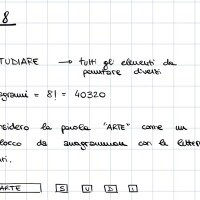 8
TUDIARE → tutti gli elementi da
permutare diversi
agrammi = 8! = 40320
nsidero la parola "ARTE" come un
locco da anagrammare con le lettere
ti.
ARTE S U D I